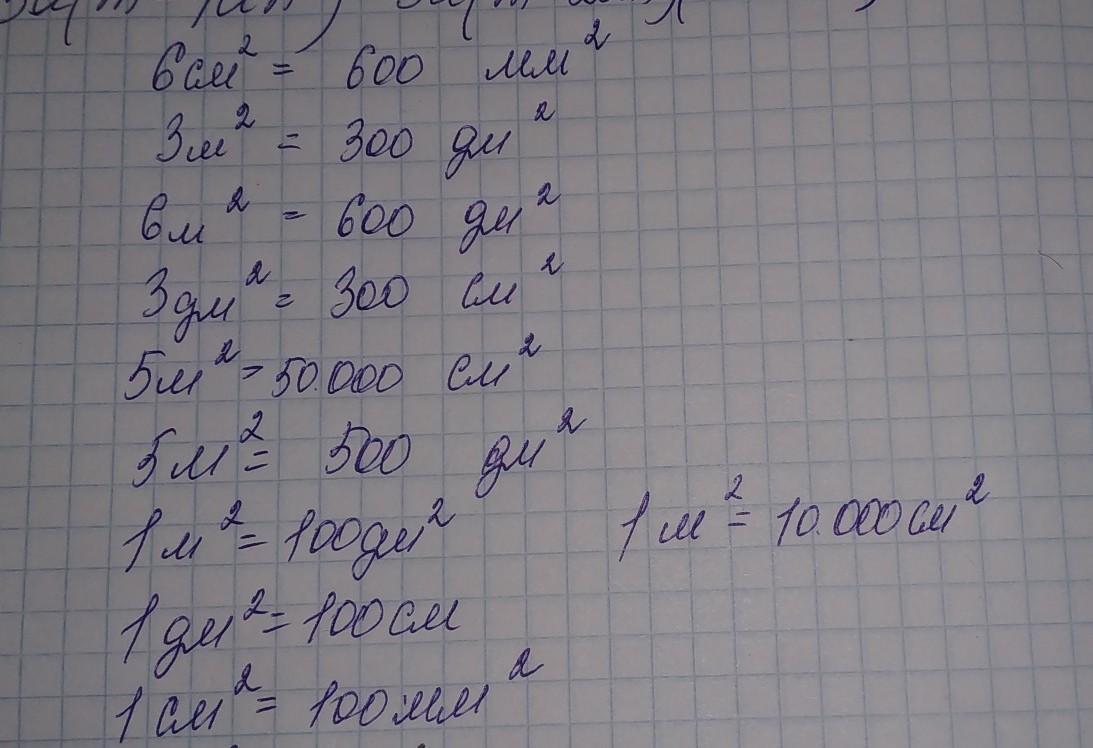 6см² = 600 мм²
3м² = 300 дм²
6м² = 600 дм²
3дм² = 300 см²
5м² = 50.000 см²
5м² = 500 дм²
1м² = 100дм² 1м² = 10.000см²
1дм² = 100см
1см² = 100мм²